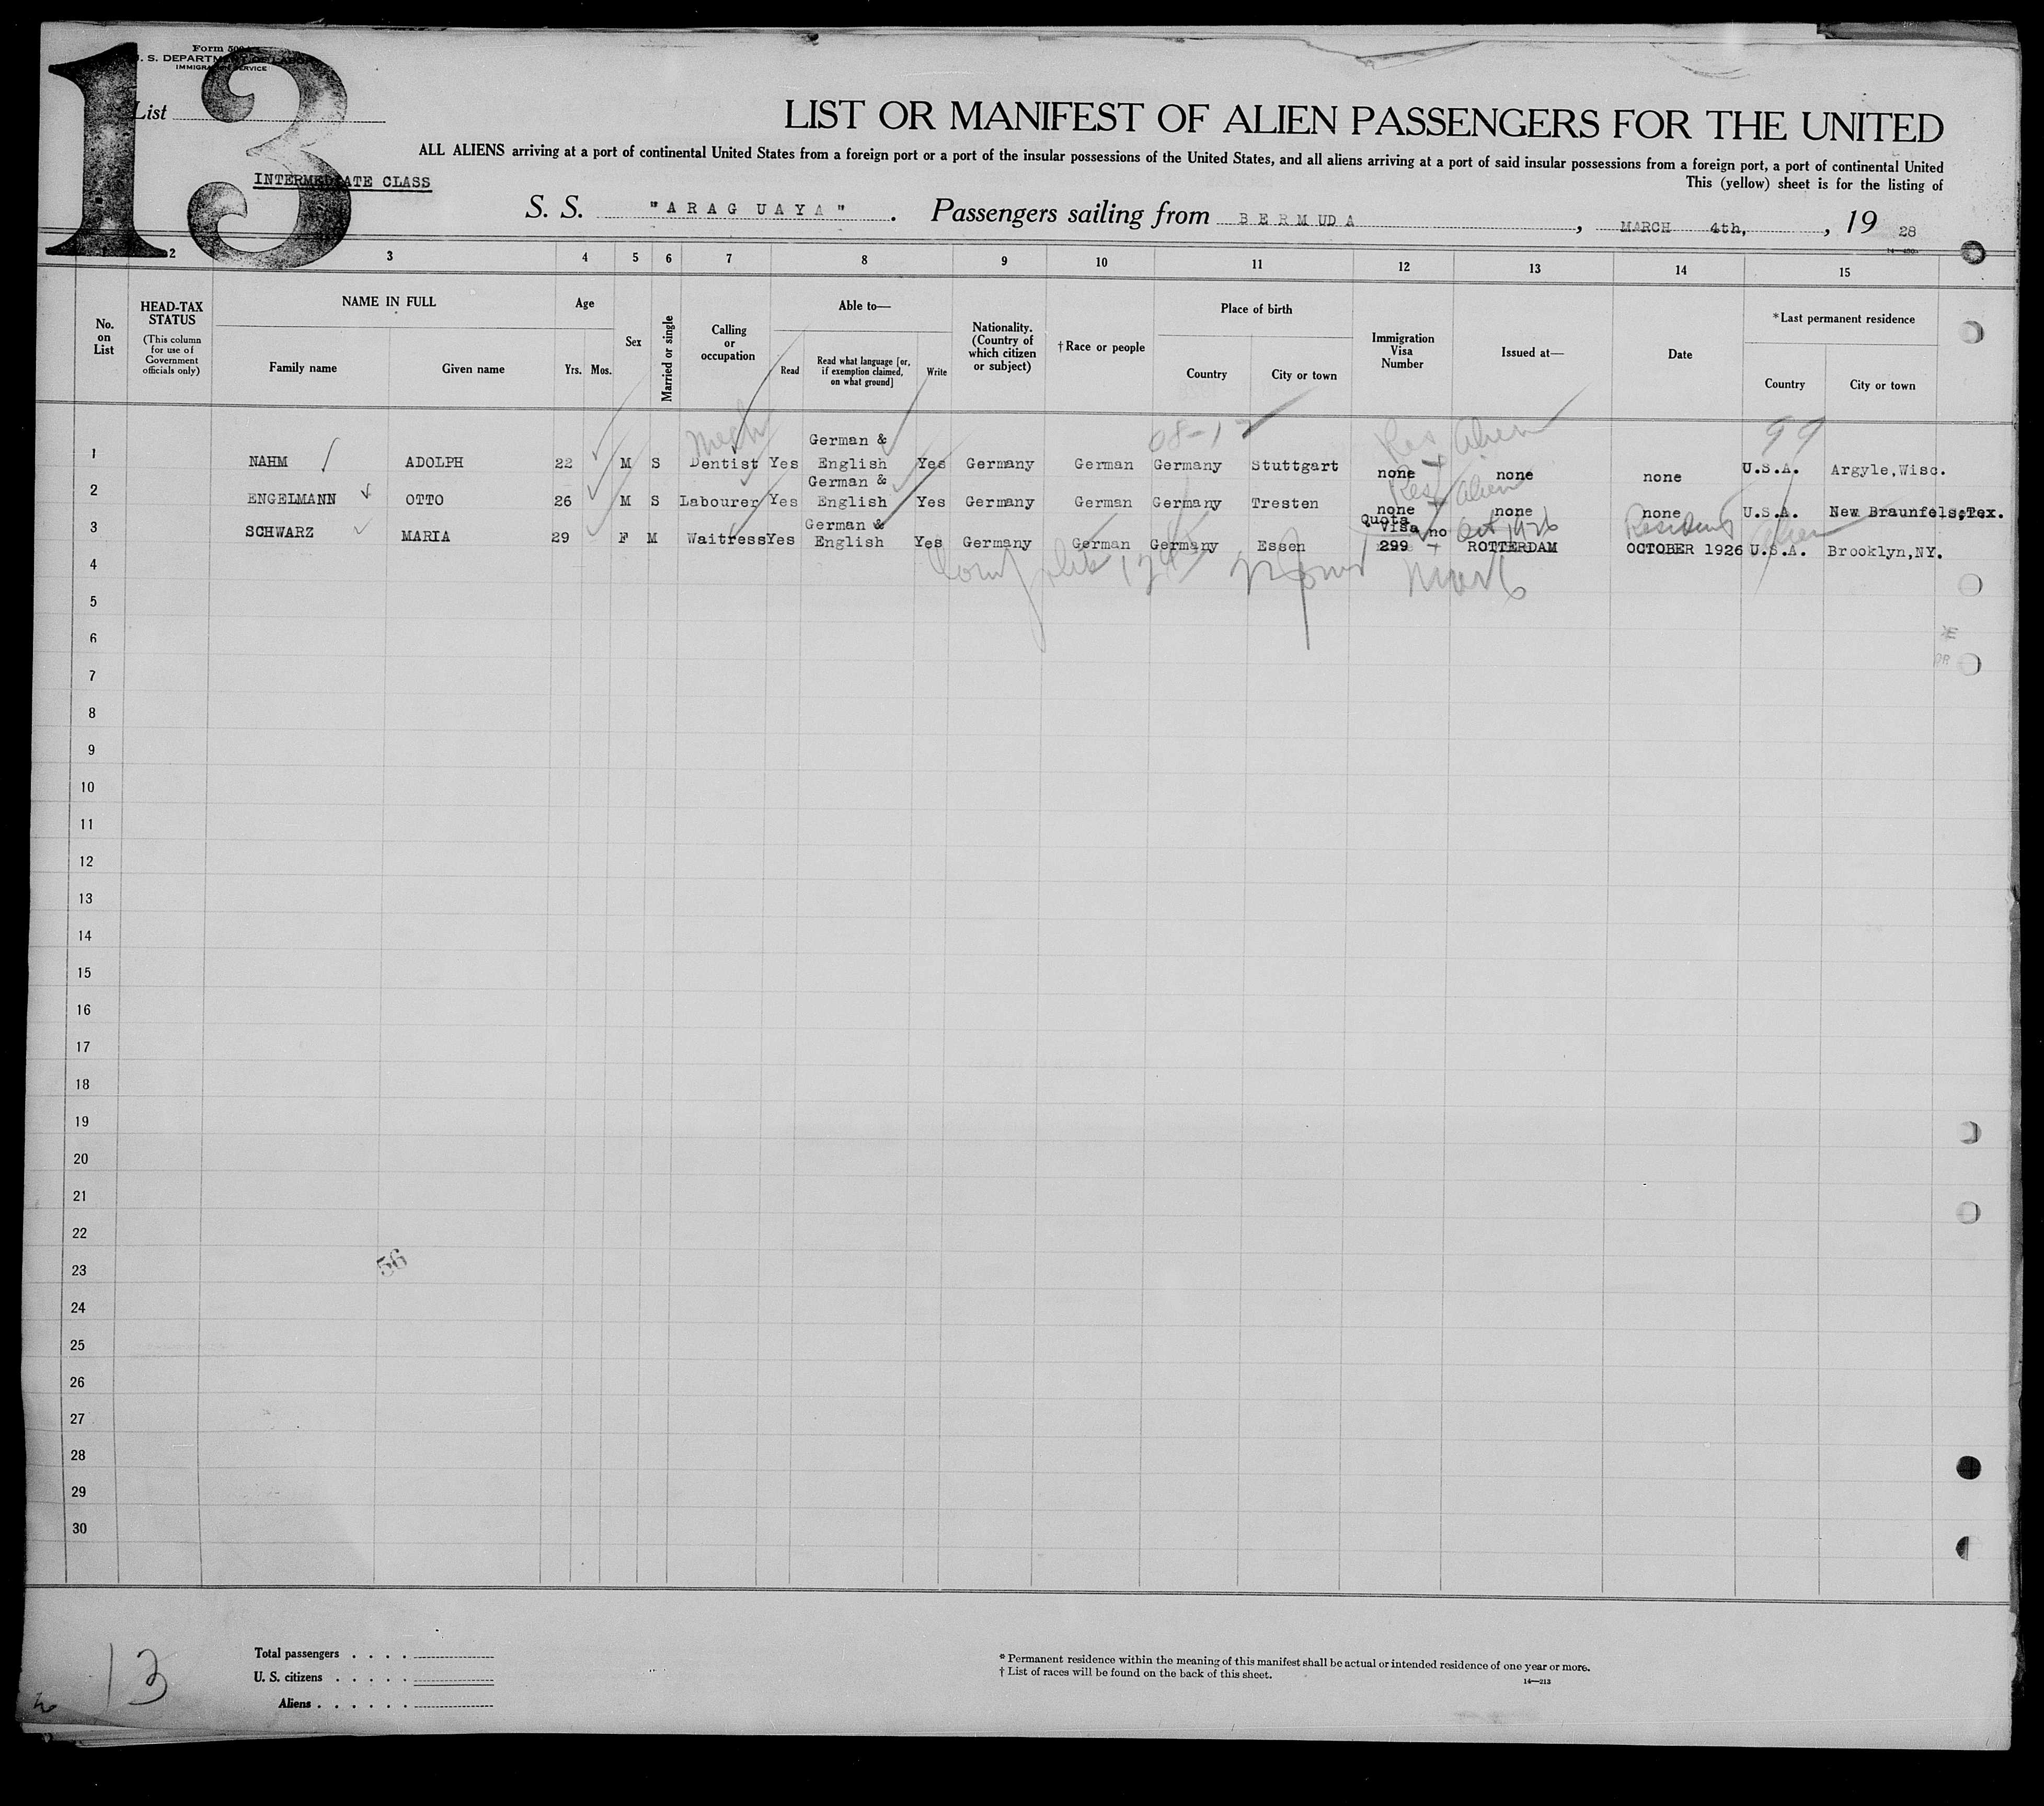 13
Form 500
U. S. DEPARTMENT OF LABOR
IMMIGRATION SERVICE
List
INTERMEDIATE CLASS
LIST OR MANIFEST OF ALIEN PASSENGERS FOR THE UNITED
ALL ALIENS arriving at a port of continental United States from a foreign port or a port of the insular possessions of the United States, and all aliens arriving at a port of said insular possessions from a foreign port, a port of continental United
This (yellow) sheet is for the listing of
S. S. "ARAGUAYA" . Passengers sailing from BERMUDA , MARCH 4th, , 19 28
1 2 3 4 5 6 7 8 9 10 11 12 13 14 15
No. on List
HEAD-TAX STATUS
(This column for use of Government officials only)
NAME IN FULL
Family name Given name
Age
Yrs. Mos.
Sex
Married or single
Calling or occupation
Able to—
Read
Read what language [or, if exemption claimed, on what ground]
Write
Nationality. (Country of which citizen or subject)
† Race or people
Place of birth
Country City or town
Immigration Visa Number
Issued at—
Date
*Last permanent residence
Country City or town
08-12 Res Alien 99
1 NAHM ADOLPH 22 M S Dentist Yes German & English Yes Germany German Germany Stuttgart none none none U.S.A. Argyle,Wisc.
Res Alien
2 ENGELMANN OTTO 26 M S Labourer Yes German & English Yes Germany German Germany Tresten none none none U.S.A. New Braunfels,Tex.
Oct 1926 Resident Alien
3 SCHWARZ MARIA 29 F M Waitress Yes German & English Yes Germany German Germany Essen Quota Visa no 299 ROTTERDAM OCTOBER 1926 U.S.A. Brooklyn,NY.
4
5
6
7
8
9
10
11
12
13
14
15
16
17
18
19
20
21
22
23
56
24
25
26
27
28
29
30
13
Total passengers . . . .
U. S. citizens . . . . .
Aliens . . . . . .
* Permanent residence within the meaning of this manifest shall be actual or intended residence of one year or more.
† List of races will be found on the back of this sheet.
14—213